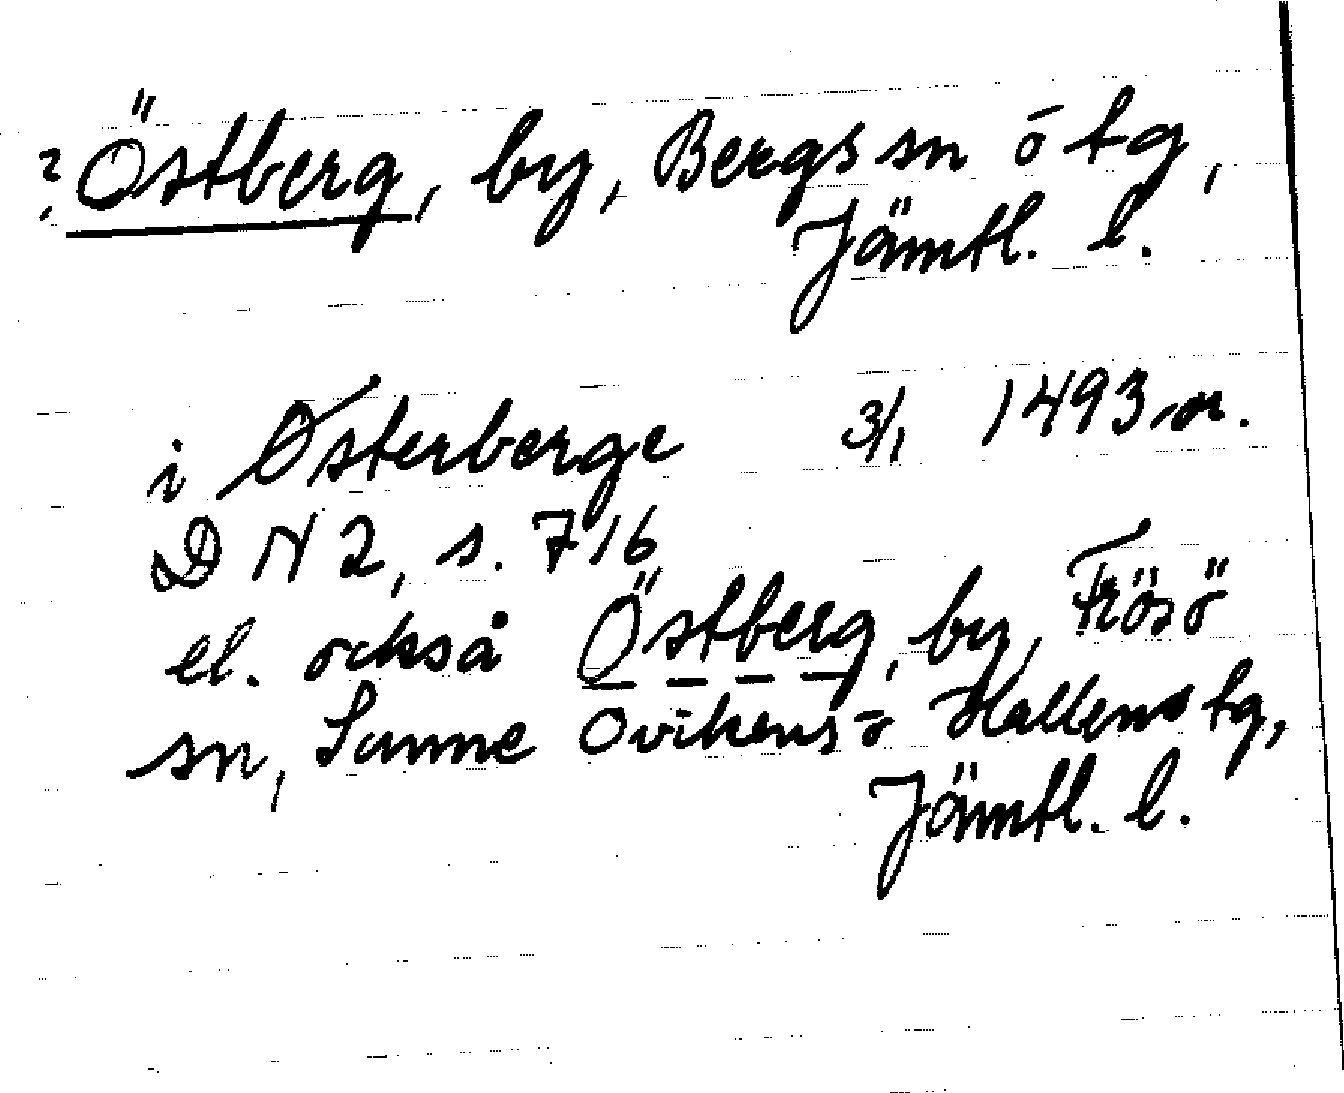 ? Östberg, by, Bergs sn ō tg,
Jämtl. l.
i Østerberge 3/1 1493 or.
DN 2, s. 716
el. också Östberg, by, Frösö
sn, Sunne Ovikens ō Hallens tg,
Jämtl. l.